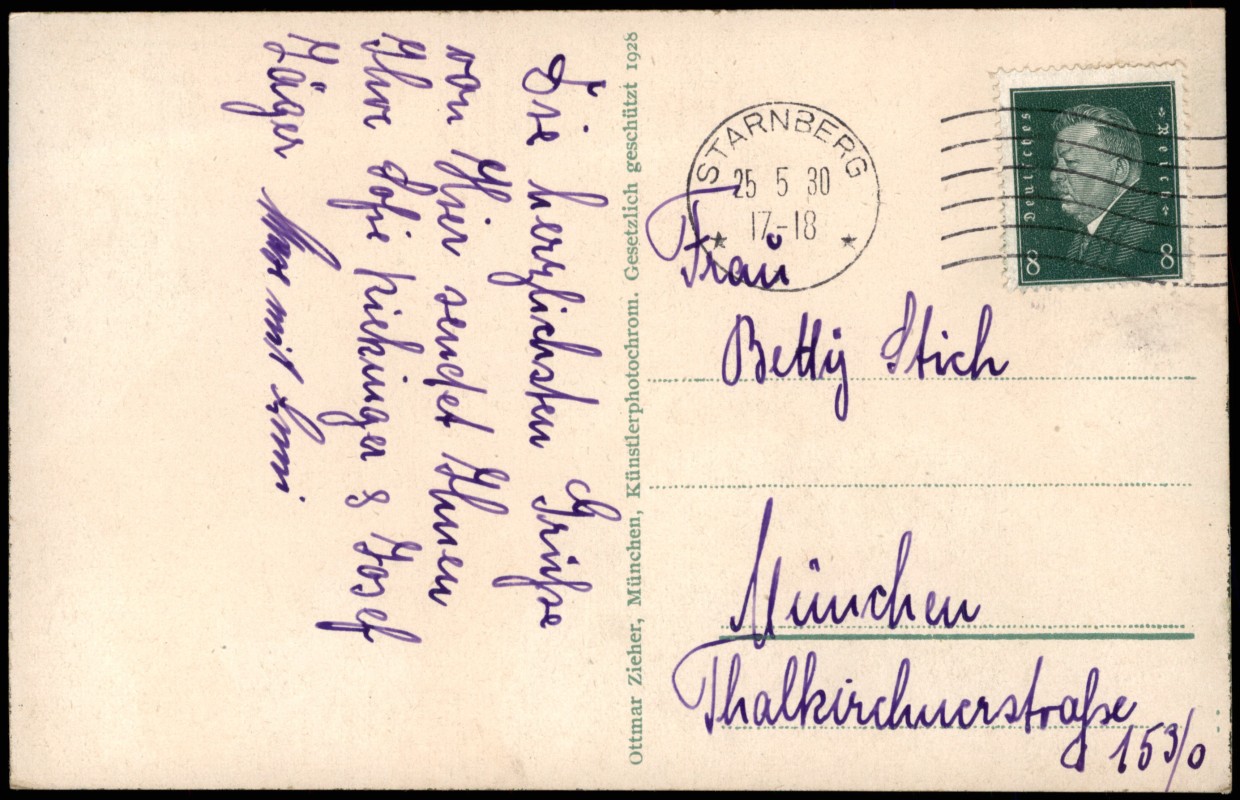 Die herzlichsten Grüße
von Hier sendet Ihnen
Ihre Sofie Kiekinger & Josef
Jäger
mit
Ottmar Zieher, München, Künstlerphotochrom. Gesetzlich geschützt 1928
STARNBERG
25 5 30
17-18
Deutsches Reich
8 8
Frau
Betty Stich
München
Thalkirchnerstraße
153/0